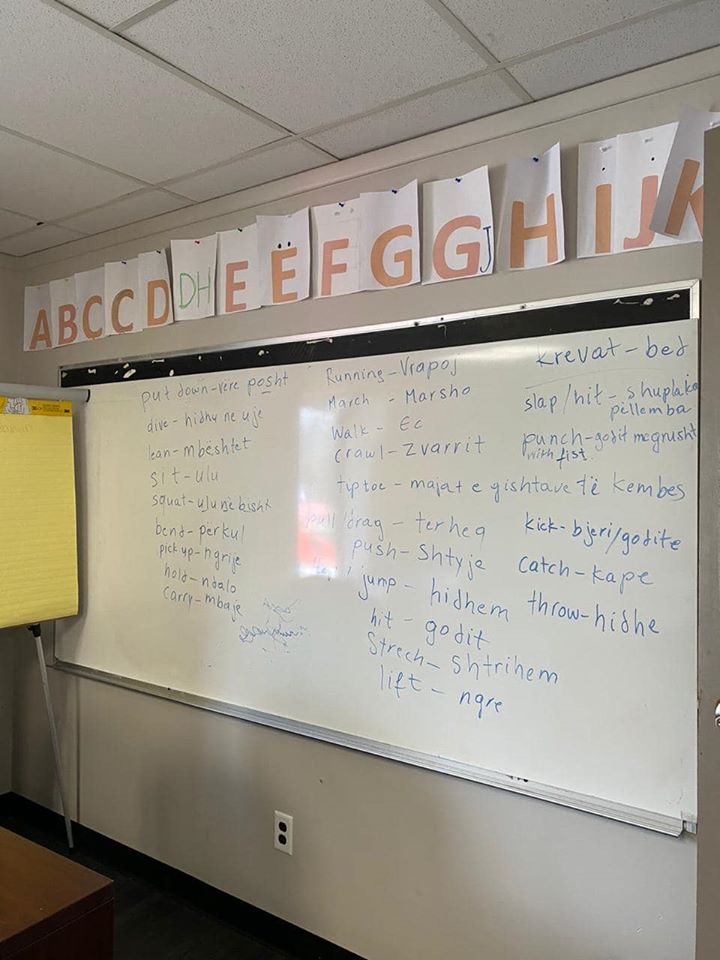 A B C C D DH E Ë F G GJ H I J K
put down-vëre posht
dive - hidhu ne uje
lean - mbështet
sit - ulu
squat - ulu në bisht
bend - përkul
pick up - ngrije
hold - ndalo
carry - mbaje
Running - Vrapoj
March - Marsho
Walk - Ec
crawl - Zvarrit
tiptoe - majat e gishtave të kembes
pull/drag - terheq
push - shtyje
jump - hidhem
hit - godit
Strech - shtrihem
lift - ngre
Krevat - bed
slap/hit - shuplaka
pëllemba
punch - godit me grusht
with fist
kick - bjeri/godite
catch - kape
throw - hidhe